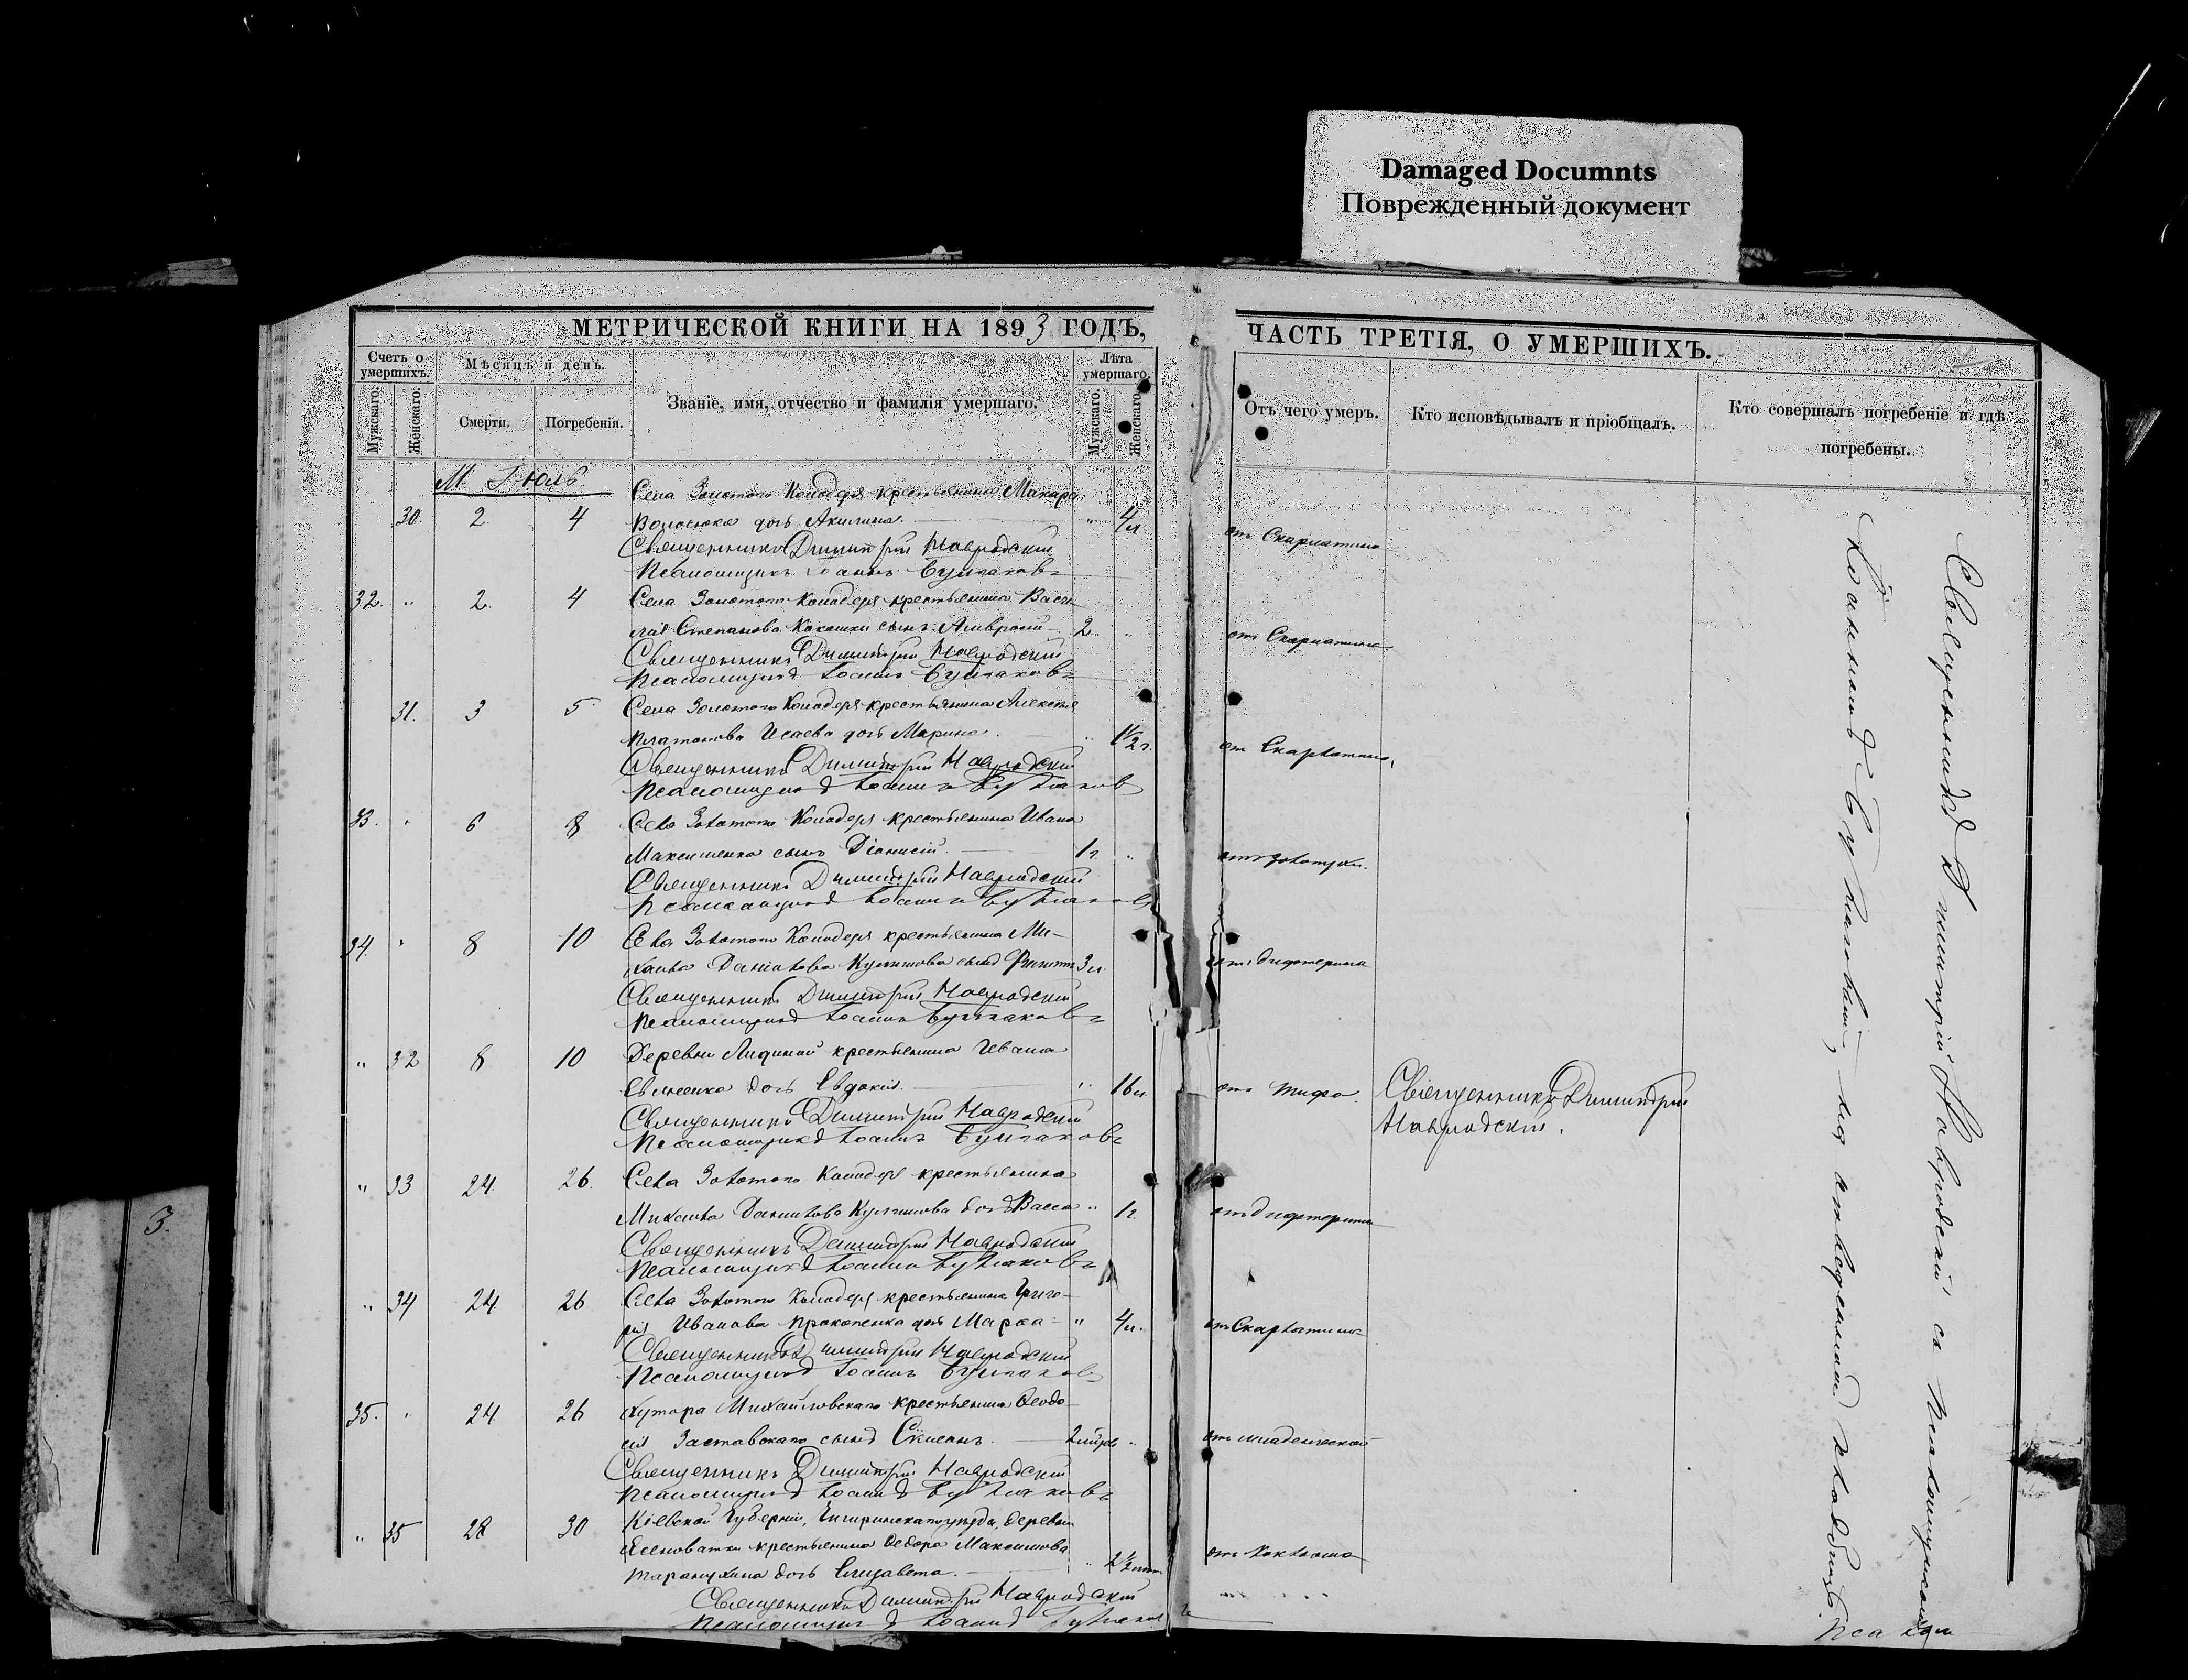 Damaged Documnts
Поврежденный документ
МЕТРИЧЕСКОЙ КНИГИ НА 1893 ГОДЪ,
ЧАСТЬ ТРЕТІЯ, О УМЕРШИХЪ.
Счетъ о умершихъ.
Мужскаго.
Женскаго.
Мѣсяцъ и день.
Смерти.
Погребенія.
Званіе, имя, отчество и фамилія умершаго.
Лѣта умершаго.
Мужскаго.
Женскаго.
Отъ чего умеръ.
Кто исповѣдывалъ и пріобщалъ.
Кто совершалъ погребеніе и гдѣ
погребены.
М. Іюль
Села Золотого Колодезя крестьянина Макара
30. 2. 4 Волосюка дочь Акилина. " 4 л. отъ Скарлатины
Священникъ Димитрій Навродскій
Псаломщикъ Іоаннъ Булгаковъ
32. " 2. 4 Села Золотого Колодезя крестьянина Васи-
лія Степанова Кокошки сынъ Амвросій 2. " отъ Скарлатины
Священникъ Димитрій Навродскій
Псаломщикъ Іоаннъ Булгаковъ
31. 3 5 Села Золотого Колодезя крестьянина Алексѣя
Платонова Исаева дочь Марина. " 1½ г. отъ Скарлатины
Священникъ Димитрій Навродскій
Псаломщикъ Іоаннъ Булгаковъ
33. " 6 8 Села Золотого Колодезя крестьянина Ивана
Максименка сынъ Діонисій 1 г. " отъ золотухи.
Священникъ Димитрій Навродскій
Псаломщикъ Іоаннъ Булгаковъ
34. " 8 10 Села Золотого Колодезя крестьянина Ми-
хаила Данилова сынъ 3 л. отъ дифтерита
Священникъ Димитрій Навродскій
Псаломщикъ Іоаннъ Булгаковъ
" 32 8 10 Деревни крестьянина Ивана
дочь Евдокія. " 16 л. отъ тифа. Священникъ Димитрій
Навродскій.
Священникъ Димитрій Навродскій
Псаломщикъ Іоаннъ Булгаковъ
" 33 24. 26. Села Золотого Колодезя крестьянина
Михаила Данилова дочь Васса " 1 г. отъ дифтерита
Священникъ Димитрій Навродскій
Псаломщикъ Іоаннъ Булгаковъ
" 34 24 26 Села Золотого Колодезя крестьянина Григо-
рія Иванова Прокопенка дочь Марѳа " 4 л. отъ Скарлатины
Священникъ Димитрій Навродскій
Псаломщикъ Іоаннъ Булгаковъ
35. " 24 26 Хутора Михайловскаго крестьянина Ѳеодо-
сія Заставскаго сынъ " отъ младенческой
Священникъ Димитрій Навродскій
Псаломщикъ Іоаннъ Булгаковъ
" 35 28 30 Кіевской Губерніи, Чигиринскаго уѣзда, деревни
Ясеноватки крестьянина Ѳедора Максимова
дочь Елизавета. " 2½ отъ Коклюша
Священникъ Димитрій Навродскій
Псаломщикъ Іоаннъ Булгаковъ
Священникъ Димитрій Навродскій съ Псаломщикомъ
Іоанномъ Булгаковымъ, на кладбищѣ.
3.